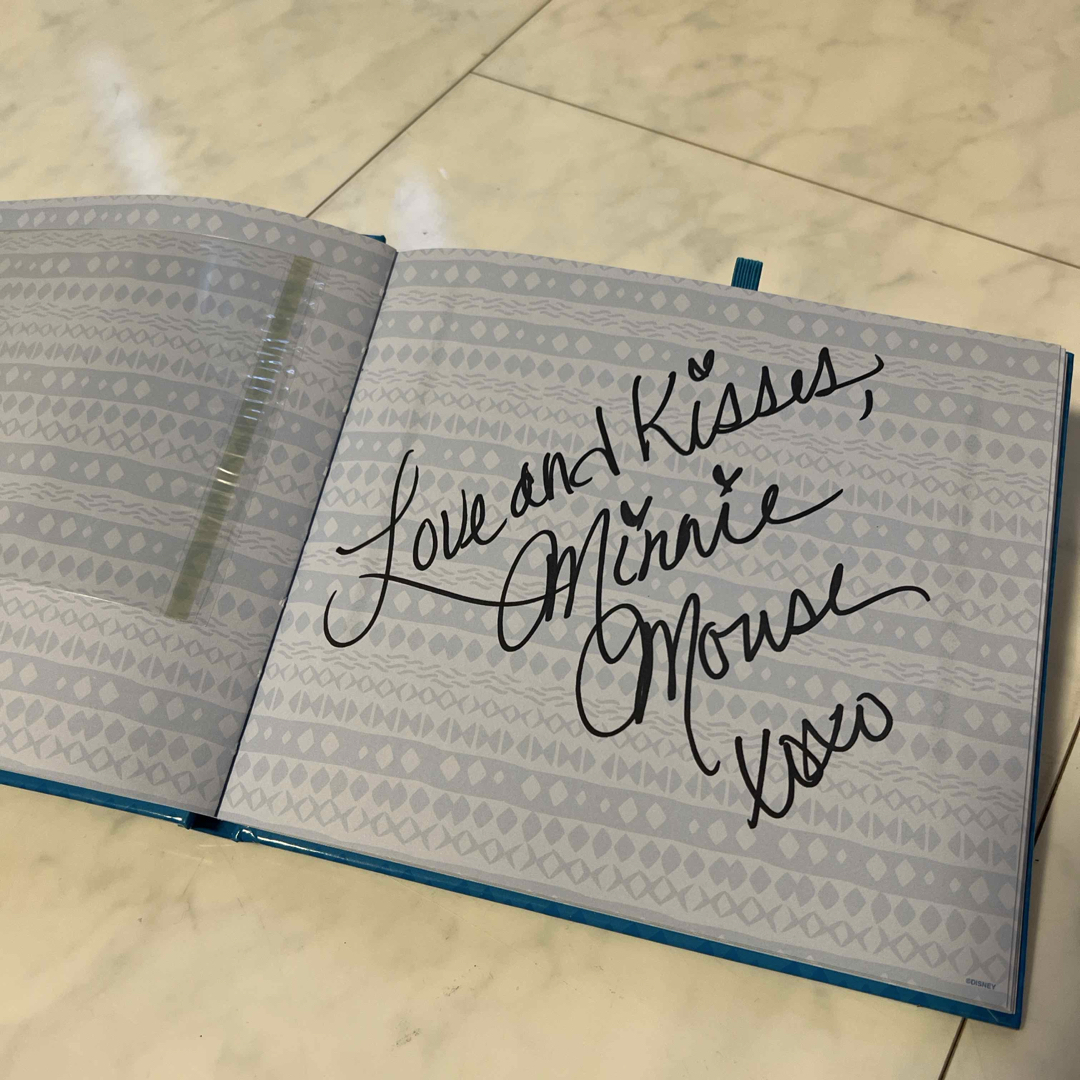 Love and Kisses,
Minnie
Mouse
xoxo
©DISNEY